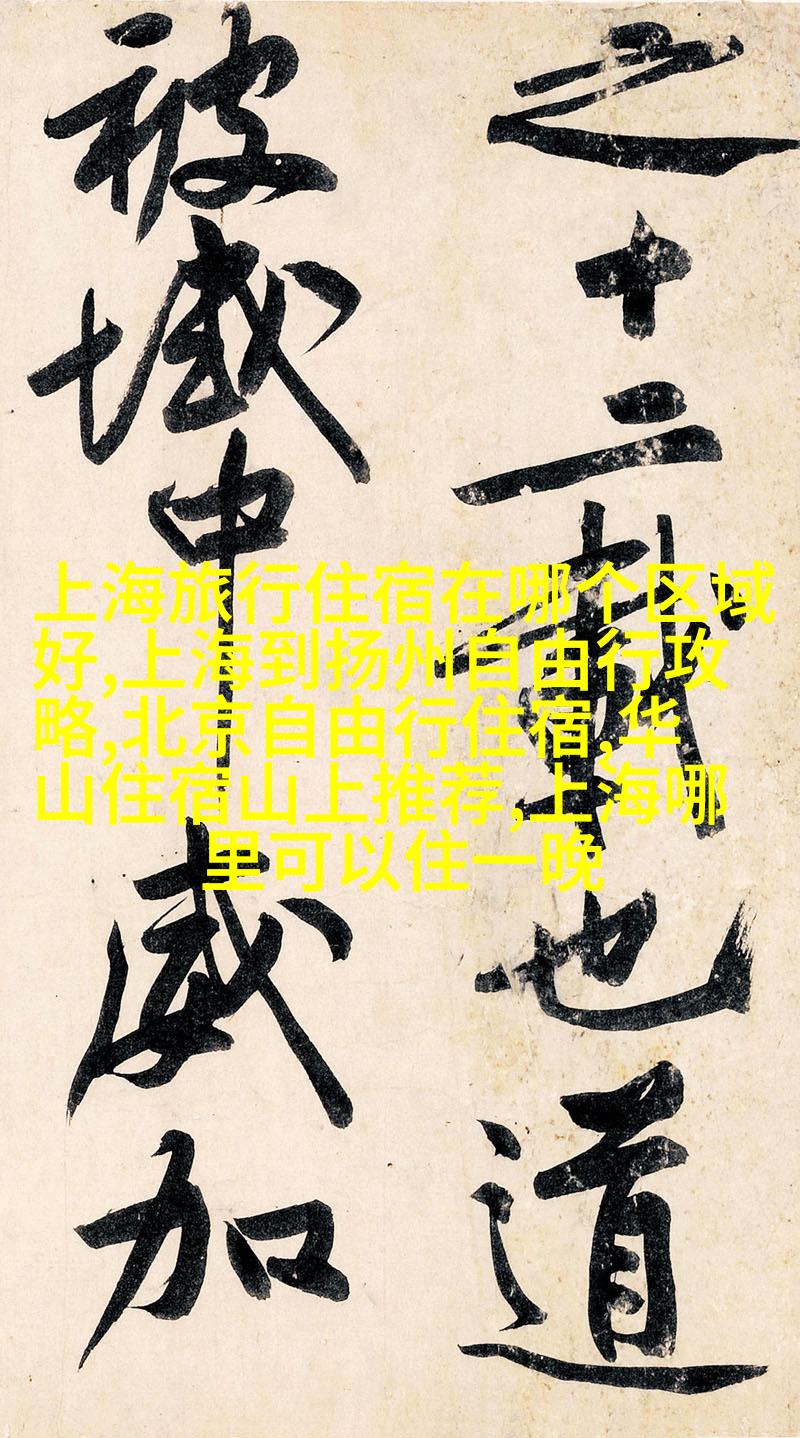 之十二载也道
被域中威加
上海旅行住宿在哪个区域
好,上海到扬州自由行攻
略,北京自由行住宿,华
山住宿山上推荐,上海哪
里可以住一晚